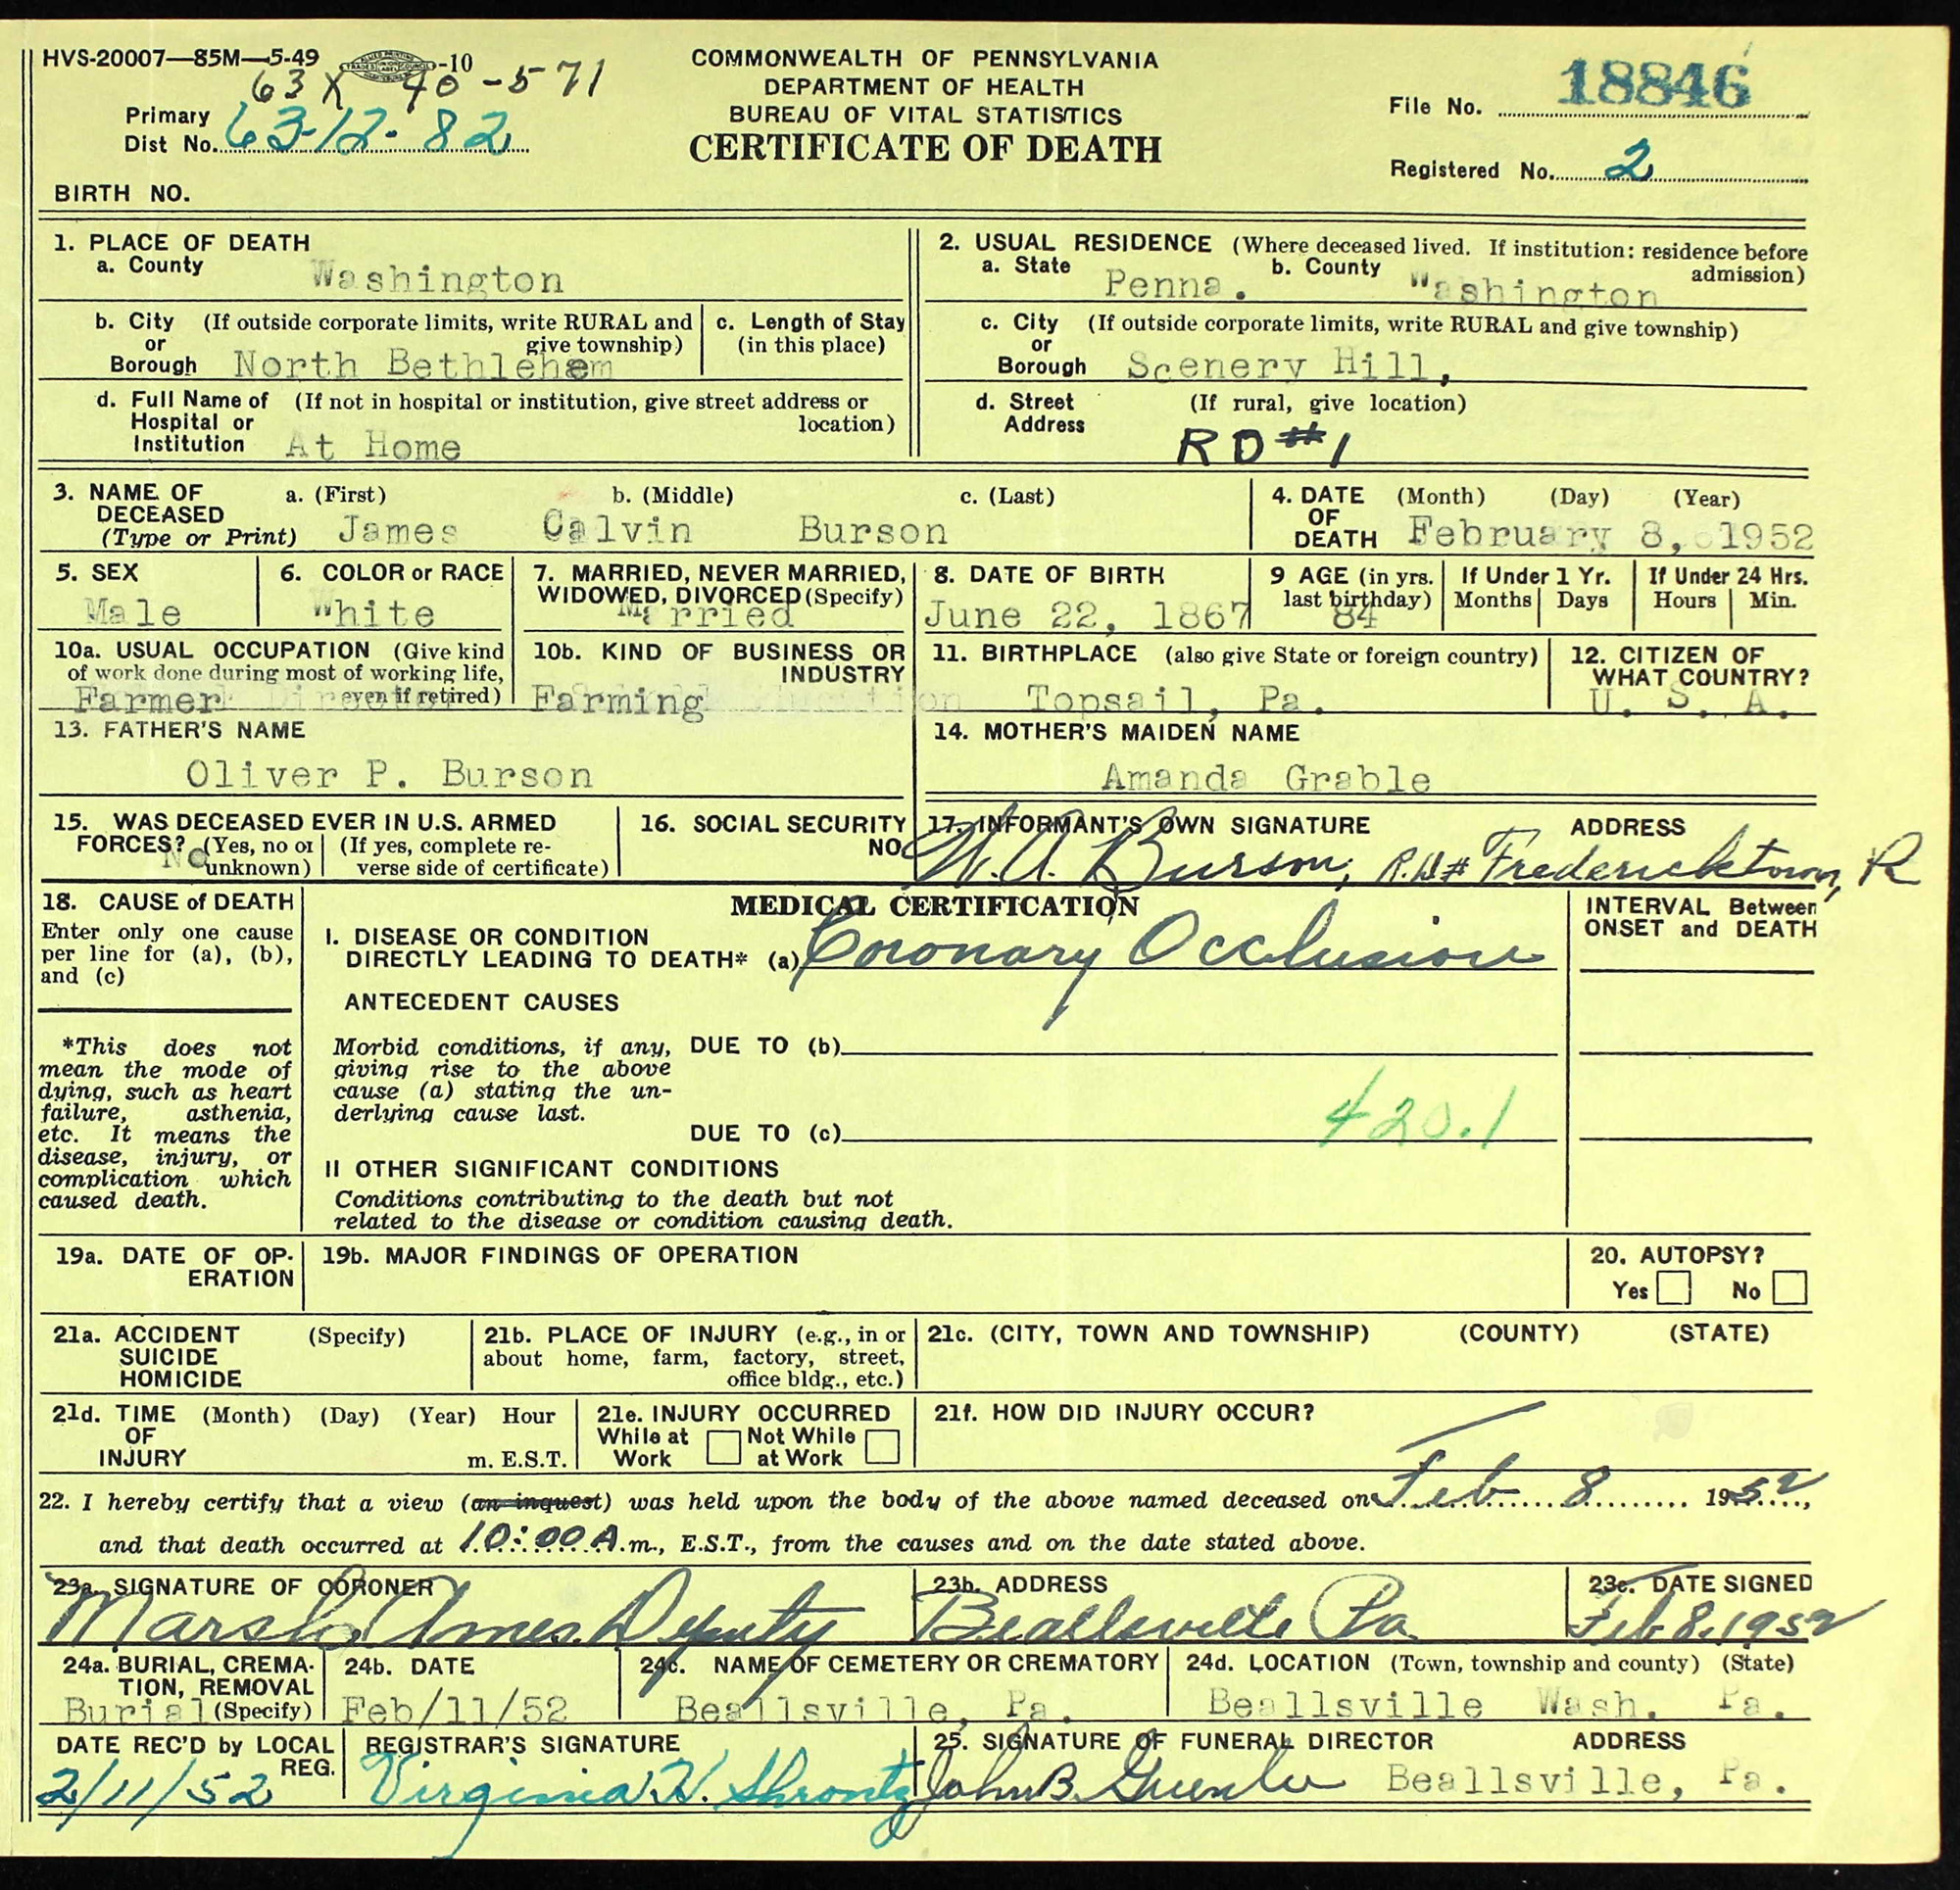 HVS-20007—85M—5-49 -10
63 X 40-571
COMMONWEALTH OF PENNSYLVANIA
DEPARTMENT OF HEALTH
BUREAU OF VITAL STATISTICS
CERTIFICATE OF DEATH
Primary
Dist No. 63-12-82
BIRTH NO.
File No. 18846
Registered No. 2
1. PLACE OF DEATH
a. County Washington
b. City (If outside corporate limits, write RURAL and
or give township)
Borough North Bethlehem
c. Length of Stay
(in this place)
d. Full Name of (If not in hospital or institution, give street address or
Hospital or location)
Institution At Home
2. USUAL RESIDENCE (Where deceased lived. If institution: residence before
admission)
a. State Penna. b. County Washington
c. City (If outside corporate limits, write RURAL and give township)
or
Borough Scenery Hill,
d. Street (If rural, give location)
Address RD #1
3. NAME OF a. (First) b. (Middle) c. (Last)
DECEASED
(Type or Print) James Calvin Burson
4. DATE (Month) (Day) (Year)
OF
DEATH February 8, 1952
5. SEX
Male
6. COLOR or RACE
White
7. MARRIED, NEVER MARRIED,
WIDOWED, DIVORCED (Specify)
Married
8. DATE OF BIRTH
June 22, 1867
9 AGE (in yrs.
last birthday)
84
If Under 1 Yr.
Months Days
If Under 24 Hrs.
Hours Min.
10a. USUAL OCCUPATION (Give kind
of work done during most of working life,
even if retired)
Farmer
10b. KIND OF BUSINESS OR
INDUSTRY
Farming
11. BIRTHPLACE (also give State or foreign country)
Topsail, Pa.
12. CITIZEN OF
WHAT COUNTRY?
U. S. A.
13. FATHER'S NAME
Oliver P. Burson
14. MOTHER'S MAIDEN NAME
Amanda Grable
15. WAS DECEASED EVER IN U.S. ARMED
FORCES? (Yes, no or (If yes, complete re-
No unknown) verse side of certificate)
16. SOCIAL SECURITY
NO.
17. INFORMANT'S OWN SIGNATURE ADDRESS
W. A. Burson, R.D# Fredericktown, P
18. CAUSE of DEATH
Enter only one cause
per line for (a), (b),
and (c)
*This does not
mean the mode of
dying, such as heart
failure, asthenia,
etc. It means the
disease, injury, or
complication which
caused death.
MEDICAL CERTIFICATION
I. DISEASE OR CONDITION
DIRECTLY LEADING TO DEATH* (a) Coronary Occlusion
ANTECEDENT CAUSES
Morbid conditions, if any, DUE TO (b)
giving rise to the above
cause (a) stating the un-
derlying cause last.
DUE TO (c) 420.1
II OTHER SIGNIFICANT CONDITIONS
Conditions contributing to the death but not
related to the disease or condition causing death.
INTERVAL Between
ONSET and DEATH
19a. DATE OF OP-
ERATION
19b. MAJOR FINDINGS OF OPERATION
20. AUTOPSY?
Yes No
21a. ACCIDENT (Specify)
SUICIDE
HOMICIDE
21b. PLACE OF INJURY (e.g., in or
about home, farm, factory, street,
office bldg., etc.)
21c. (CITY, TOWN AND TOWNSHIP) (COUNTY) (STATE)
21d. TIME (Month) (Day) (Year) Hour
OF
INJURY m. E.S.T.
21e. INJURY OCCURRED
While at Not While
Work at Work
21f. HOW DID INJURY OCCUR?
22. I hereby certify that a view (an inquest) was held upon the body of the above named deceased on Feb 8 1952,
and that death occurred at 10:00 A.m., E.S.T., from the causes and on the date stated above.
23a. SIGNATURE OF CORONER
Marsh Ames Deputy
23b. ADDRESS
Beallsville Pa.
23c. DATE SIGNED
Feb 8, 1952
24a. BURIAL, CREMA-
TION, REMOVAL
Burial (Specify)
24b. DATE
Feb/11/52
24c. NAME OF CEMETERY OR CREMATORY
Beallsville, Pa.
24d. LOCATION (Town, township and county) (State)
Beallsville Wash. Pa.
DATE REC'D by LOCAL
REG.
2/11/52
REGISTRAR'S SIGNATURE
Virginia H. Shrontz
25. SIGNATURE OF FUNERAL DIRECTOR ADDRESS
John B. Greenlee Beallsville, Pa.